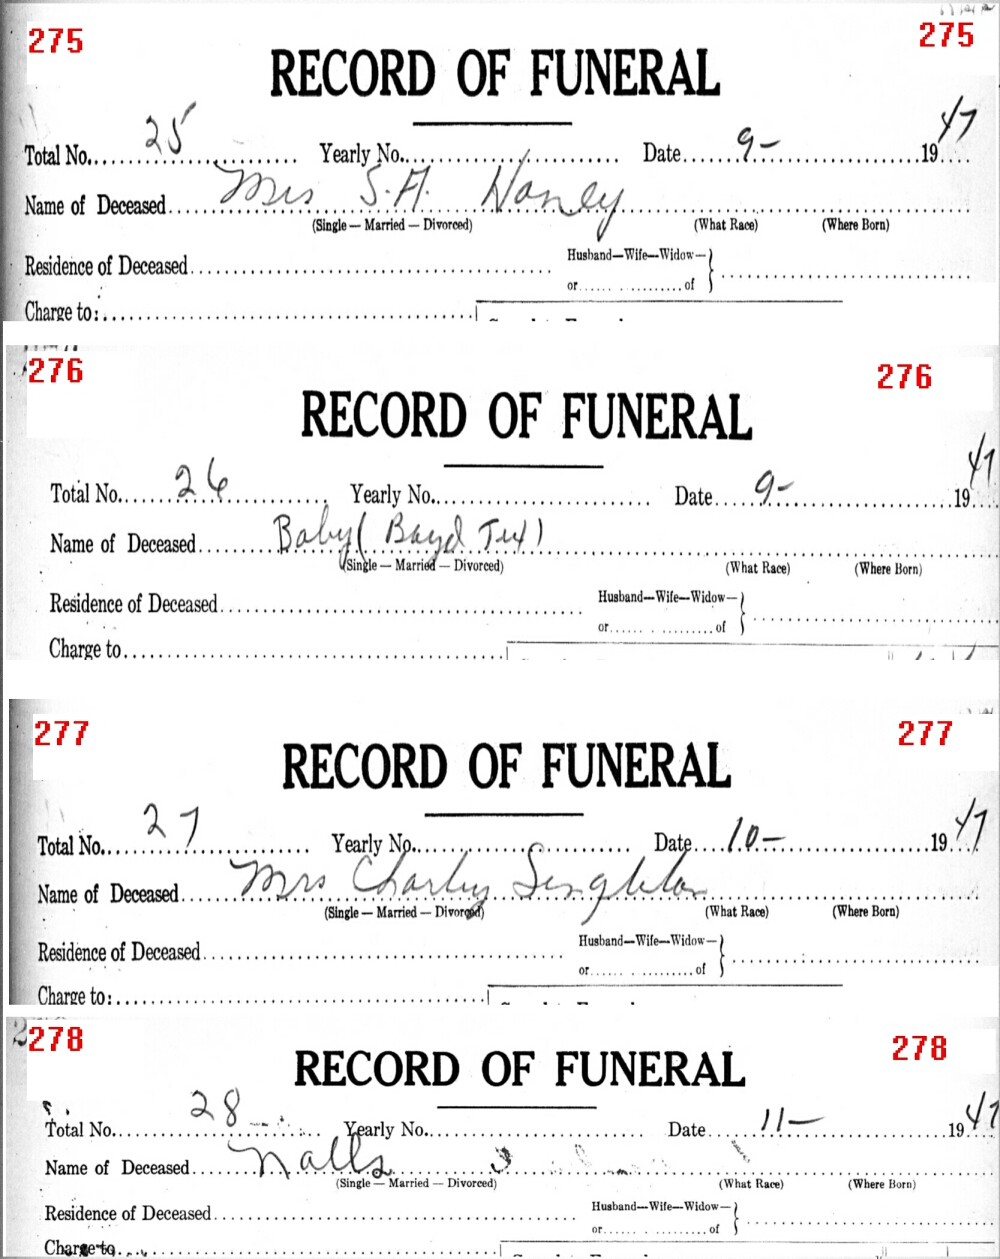 275 275
RECORD OF FUNERAL
Total No. 25 Yearly No. Date 9- 1947
Name of Deceased Mrs S.A. Haney
(Single — Married — Divorced) (What Race) (Where Born)
Residence of Deceased Husband—Wife—Widow—
or of
Charge to:
276 276
RECORD OF FUNERAL
Total No. 26 Yearly No. Date 9- 1947
Name of Deceased Baby ( Boyd Tex )
(Single — Married — Divorced) (What Race) (Where Born)
Residence of Deceased Husband—Wife—Widow—
or of
Charge to
277 277
RECORD OF FUNERAL
Total No. 27 Yearly No. Date 10- 1947
Name of Deceased Mrs Charley Singleton
(Single — Married — Divorced) (What Race) (Where Born)
Residence of Deceased Husband—Wife—Widow—
or of
Charge to:
278 278
RECORD OF FUNERAL
Total No. 28 Yearly No. Date 11- 1947
Name of Deceased Nalls
(Single — Married — Divorced) (What Race) (Where Born)
Residence of Deceased Husband—Wife—Widow—
or of
Charge to